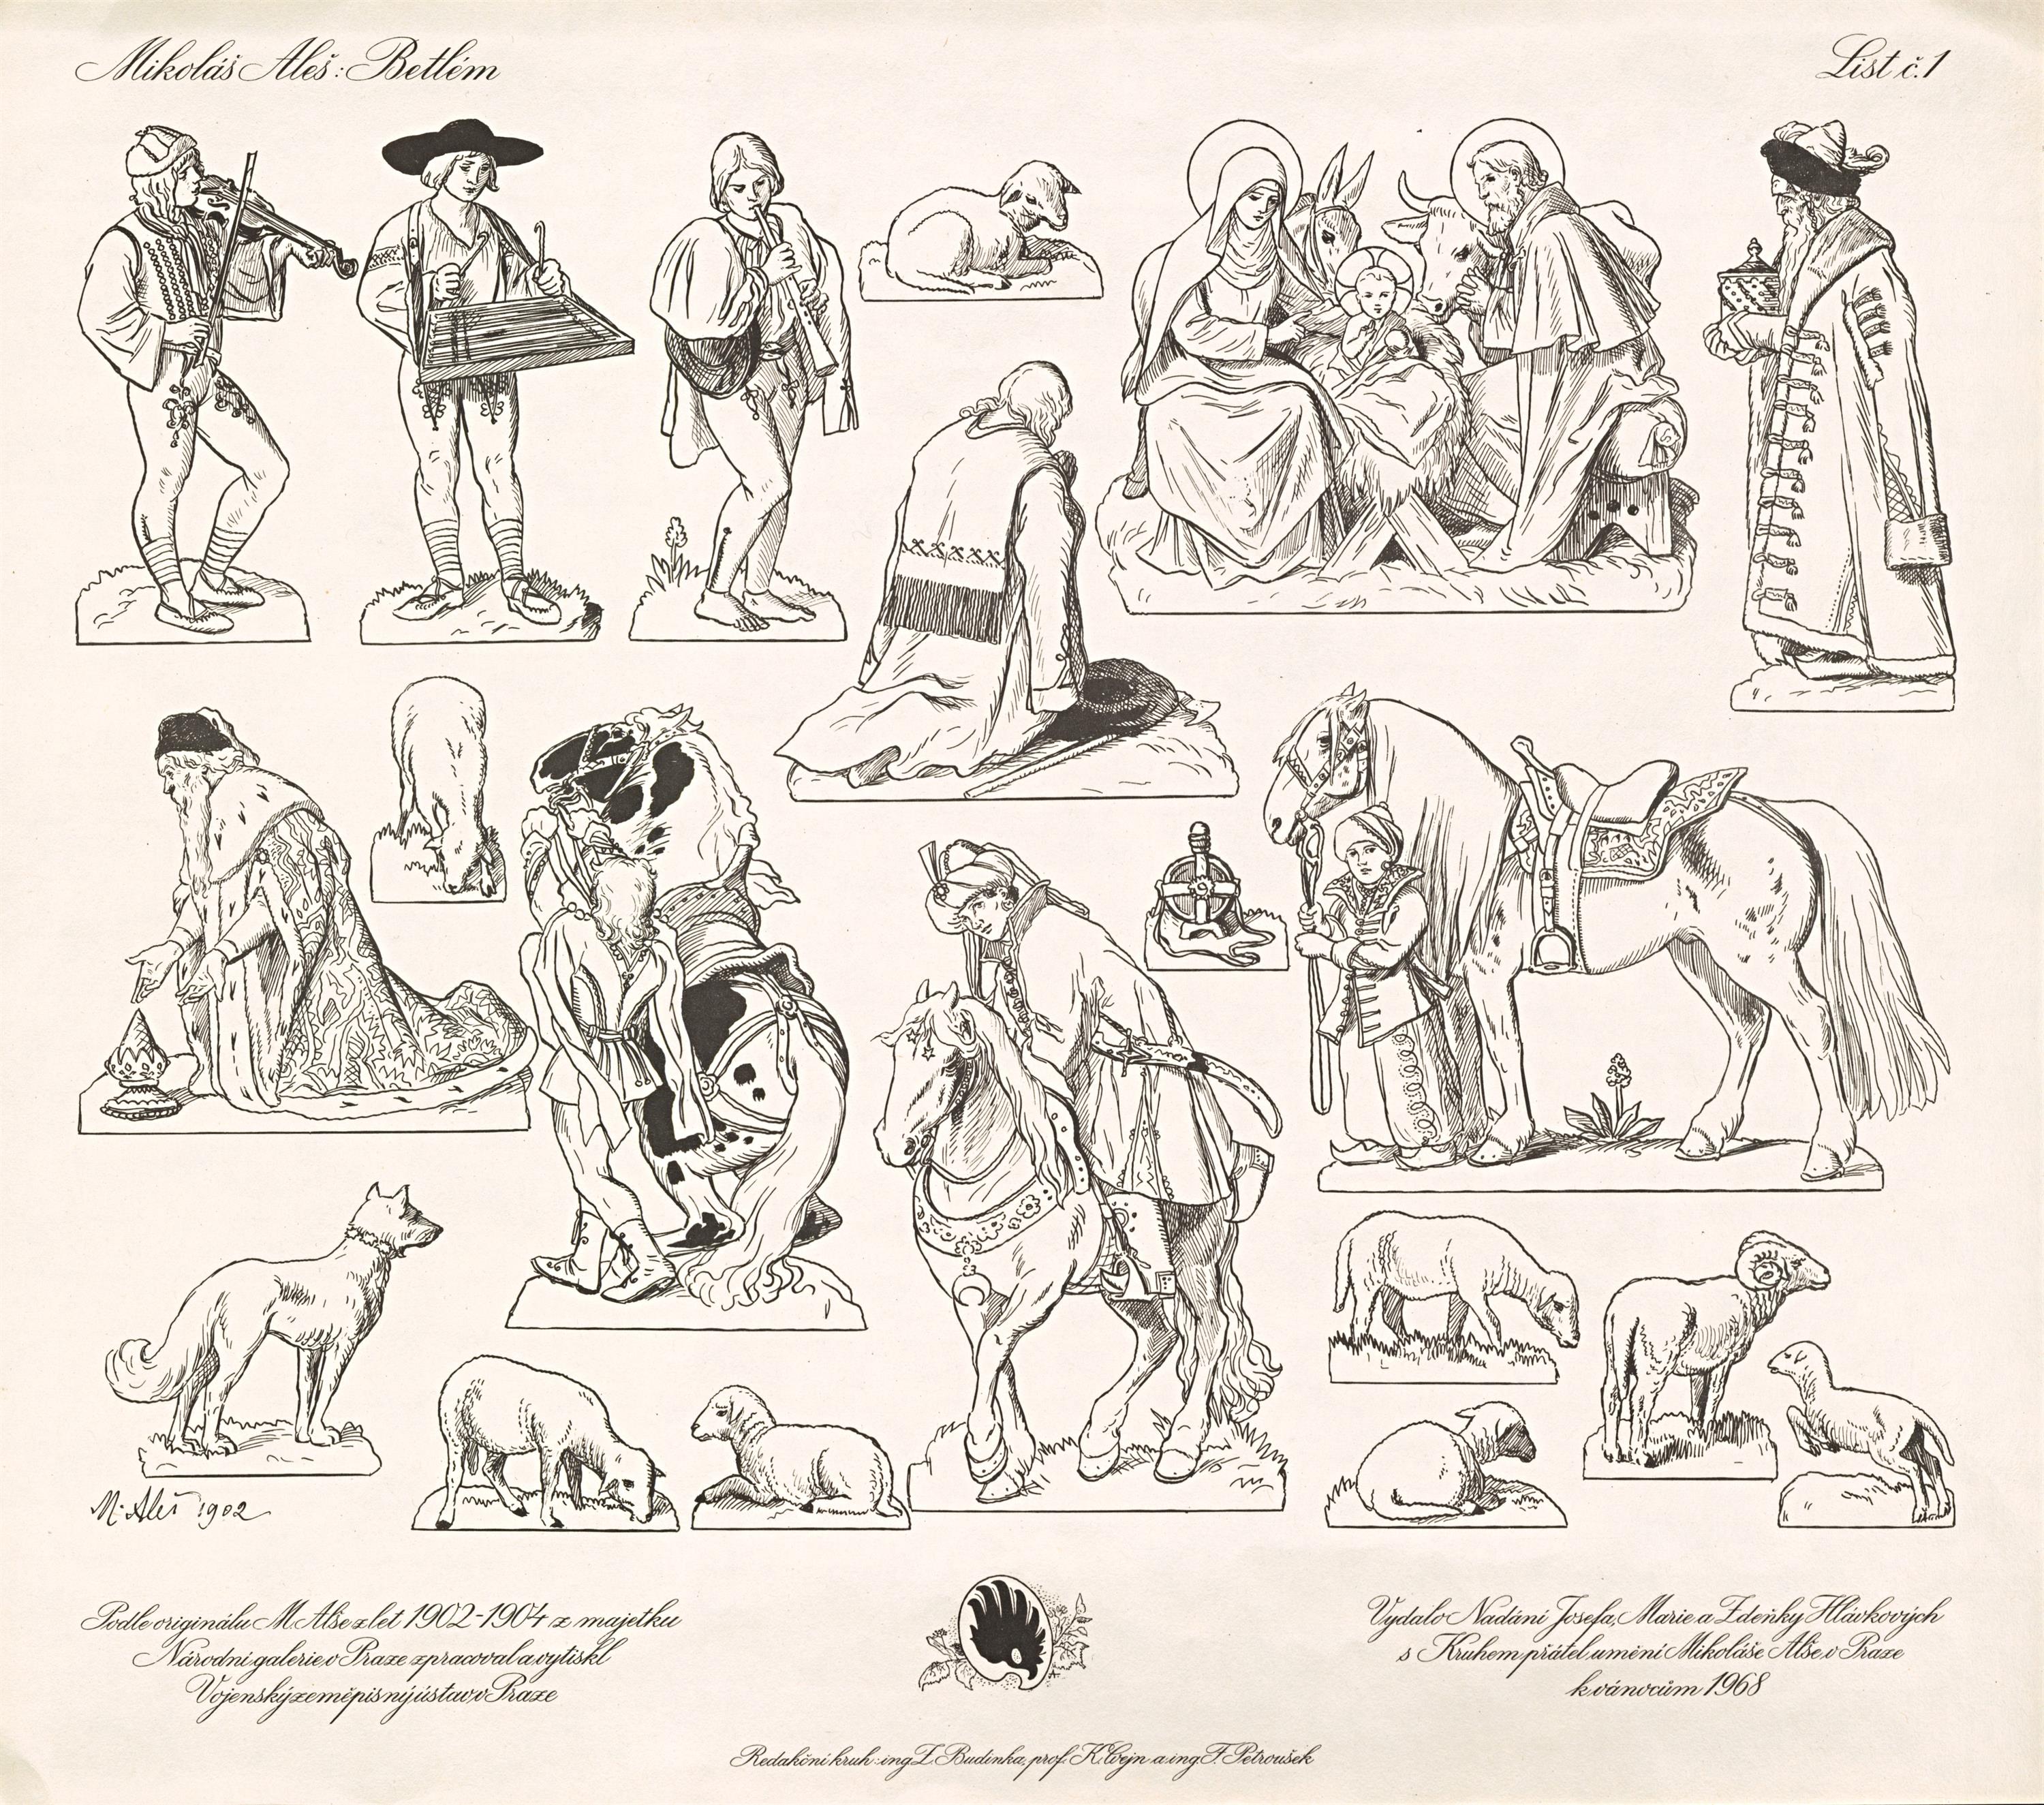 Mikoláš Aleš: Betlém
List č.1
M. Aleš 1902
Podle originálu M. Alše z let 1902-1904 z majetku
Národní galerie v Praze zpracoval a vytiskl
Vojenský zeměpisný ústav v Praze
Vydalo Nadání Josefa, Marie a Zdeňky Hlávkových
s Kruhem přátel umění Mikoláše Alše v Praze
k vánocům 1968
Redakční kruh: ing Z. Budinka, prof. K. Cejn a ing F. Petroušek